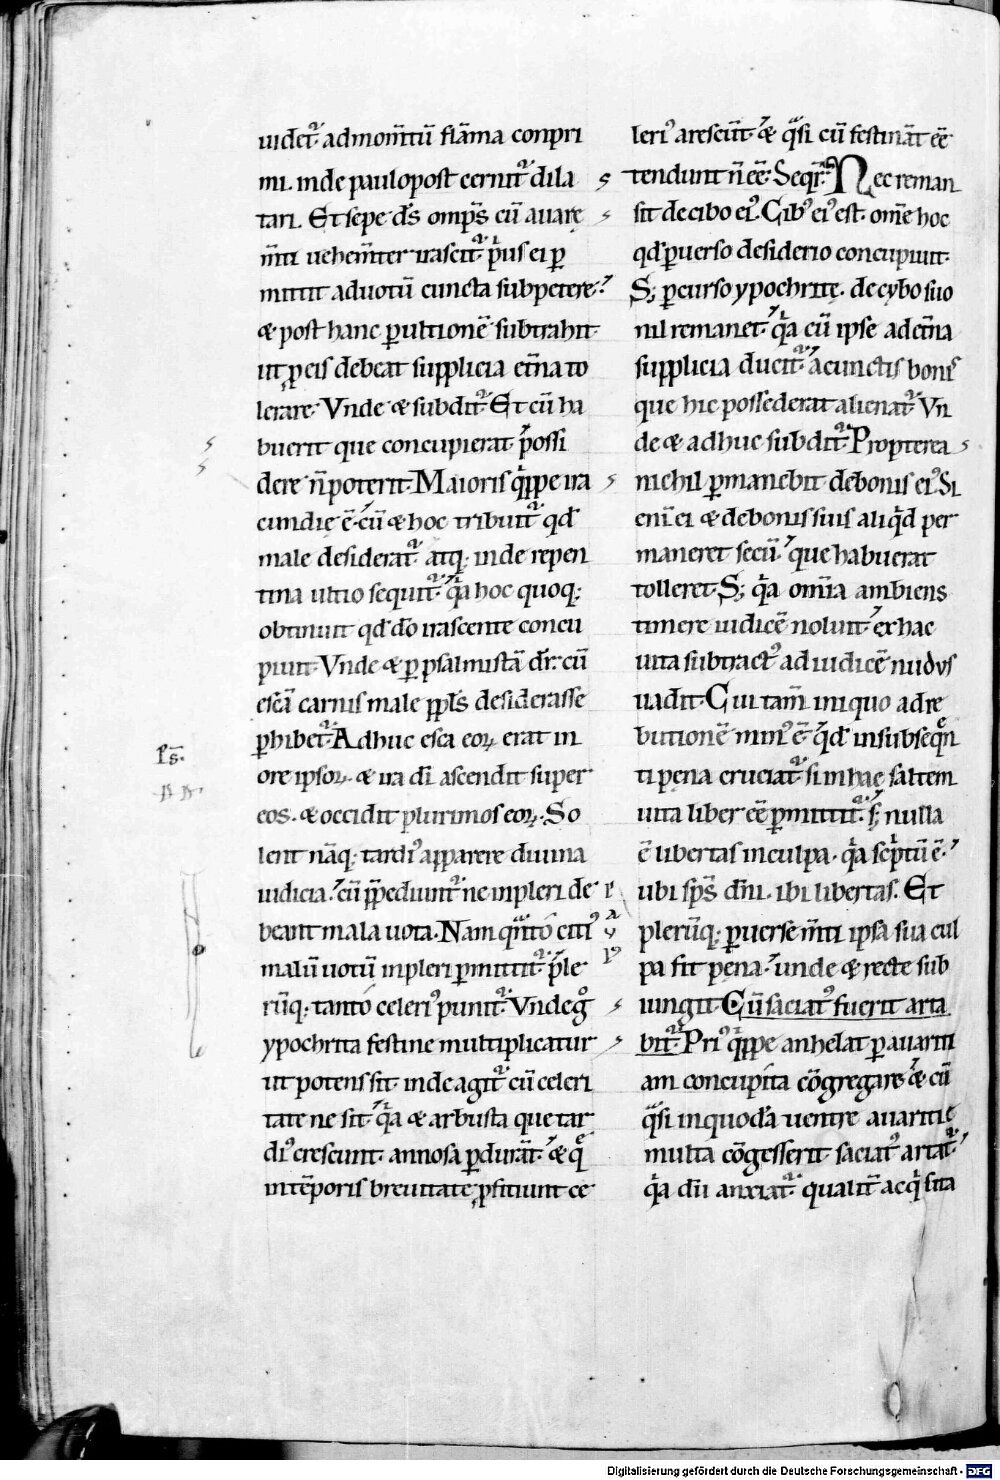 uidet᷑ admom̅tū flāma conpri
mi. inde paulo post cernit᷑ dila
tari. Et sepe d̅s omp̅s cū auarę
m̅ti uehem̅ter irascit᷑ p̍us ei ꝑ
mittit ad uotū cuncta subpetere.
& post hanc ꝑ ultionē subtrahit
ut ꝓ eis debeat supplicia et̅na to
lerare. Vnde & subdit᷑. Et cū ha
buerit que concupierat possi
dere n̅ poterit. Maioris q̍ppe ira
cundię ē cū & hoc tribuit᷑ qd̅
male desiderat᷑. atq; inde repen
tina ultio sequit᷑. q̍a hoc quoq;
obtinuit qd̅ d̅o irascente concu
piuit. Vnde & ꝑ psalmistā dr̅. cū
escā carnis male ppl̅s desiderasse
ꝑhibet᷑. Adhuc esca eoꝝ erat in
ore ipsoꝝ. & ira d̅i ascendit super
eos. & occidit plurimos eoꝝ. So
lent nāq; tardi᷒ apparere diuina
iudicia. cū p̄pediunt᷑ ne inpleri de
beant mala uota. Nam qͣnto citi᷒
malū uotū inpleri ꝑmittit᷑. p̄le
rūq; tanto celeri᷒ punit᷑. Vnde gͦ
ypochrita festine multiplicatur
ut potens sit. inde agit᷑ cū celeri
tate ne sit. q̍a & arbusta que tar
di᷒ crescunt. annosa ꝑdurāt. & q̄
in tēporis breuitate ꝓficiunt ce
Ps̅.
leri᷒ arescūt. & qͣsi cū festināt eē
tendunt n̅ eē. Seqr̅. Nec reman
sit de cibo ei᷒. Cib᷒ ei᷒ est. om̅e hoc
qd̅ ꝑuerso desiderio concupiuit.
S; ꝑcurso ypochritę. de cybo suo
nil remanet. q̍a cū ipse ad et̅na
supplicia ducit᷑. a cunctis bonis
que hic possederat alienat᷑. Vn
de & adhuc subdit᷑. Propterea
nichil ꝑmanebit de bonis ei᷒. Si
enī ei & de bonis suis aliq̍d per
maneret secū. que habuerat
tolleret. S; q̍a om̅ia ambiens
timere iudicē noluit. ex hac
uita subtract᷒ ad iudicē nudus
uadit. Cui tam̅ iniquo ad re
butionē min᷒ ē. q̍d insubseq̄n
ti pena cruciat᷑. si in hac saltem
uita liber eē ꝑmittit᷑. s; nulla
ē libertas in culpa. q̍a sc̍ptū ē.
ubi sp̅s dn̅i. ibi libertas. Et
plerūq; ꝑuerse m̅ti ipsa sua cul
pa fit pena. unde & recte sub
iungit. Cū saciat᷒ fuerit arta
bit᷑. Pri᷒ q̍ppe anhelat ꝑ auariti
am concupita cōgregare. & cū
qͣsi in quodā uentre auaritię
multa cōgesserit saciat᷒ artat᷑.
q̍a dū anxiat᷑. qualit̅ acq̍sita
Digitalisierung gefördert durch die Deutsche Forschungsgemeinschaft - DFG